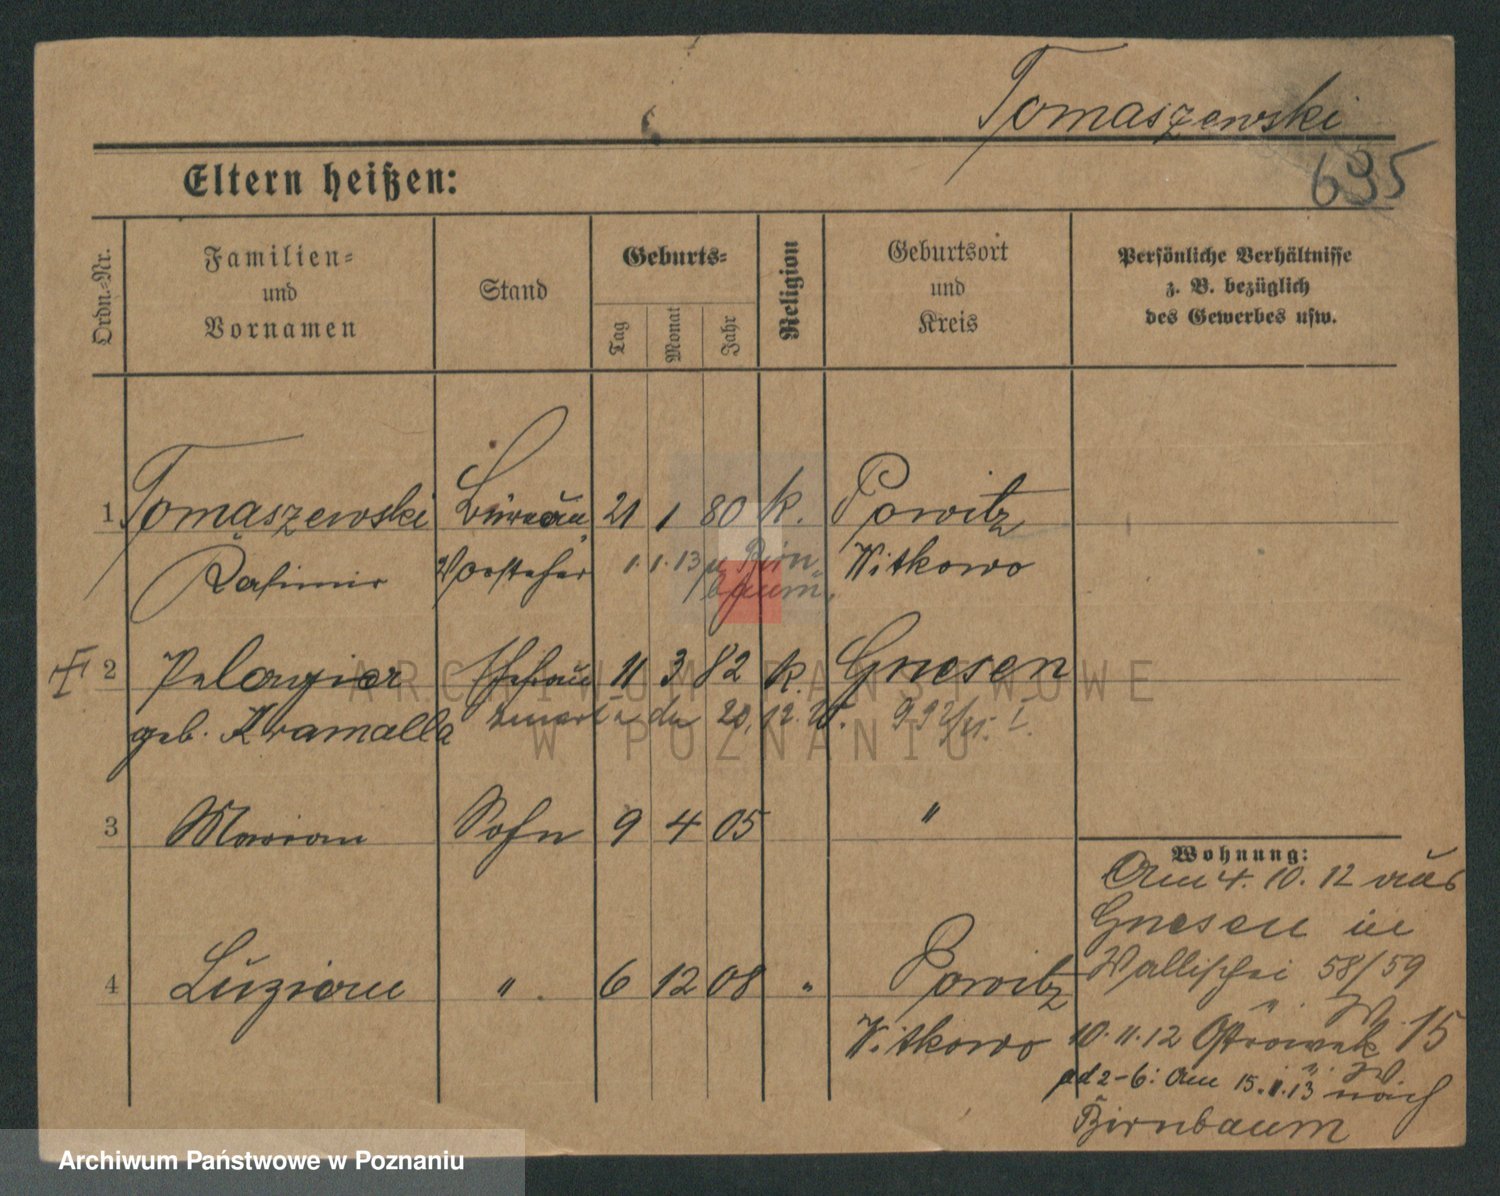 Tomaszewski
695
Eltern heißen:
Ordn.-Nr.
Familien-
und
Vornamen
Stand
Geburts-
Tag
Monat
Jahr
Religion
Geburtsort
und
Kreis
Persönliche Verhältnisse
z. B. bezüglich
des Gewerbes usw.
1 Tomaszewski Büreau 21 1 80 k. Powitz
Kasimir Vorsteher 1.1.13 n Birn Witkowo
baum.
2 Pelagia Ehefrau 11 3 82 k. Gnesen
geb. Kramalla 20.12.
3 Marian Sohn 9 4 05 "
Wohnung:
Am 4. 10. 12 aus
Gnesen in
4 Luzian " 6 12 08 " Powitz
Wallischei 58/59
Witkowo
10.11.12 Ostrowek 15
ad 2-6: Am 15.1.13 nach
Birnbaum
ARCHIWUM PAŃSTWOWE
W POZNANIU
Archiwum Państwowe w Poznaniu